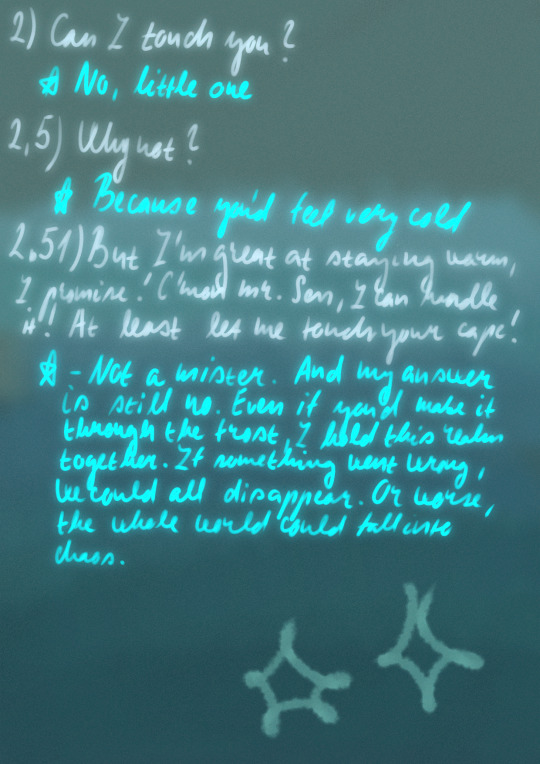 2) Can I touch you?
☆ No, little one
2,5) Why not?
☆ Because you'd feel very cold
2,51) But I'm great at staying warm,
I promise! C'mon mr. Sen, I can handle
it! At least let me touch your cape!
☆ - Not a mister. And my answer
is still no. Even if you'd make it
through the frost, I hold this realm
together. If something went wrong,
we could all disappear. Or worse,
the whole world could fall into
chaos.